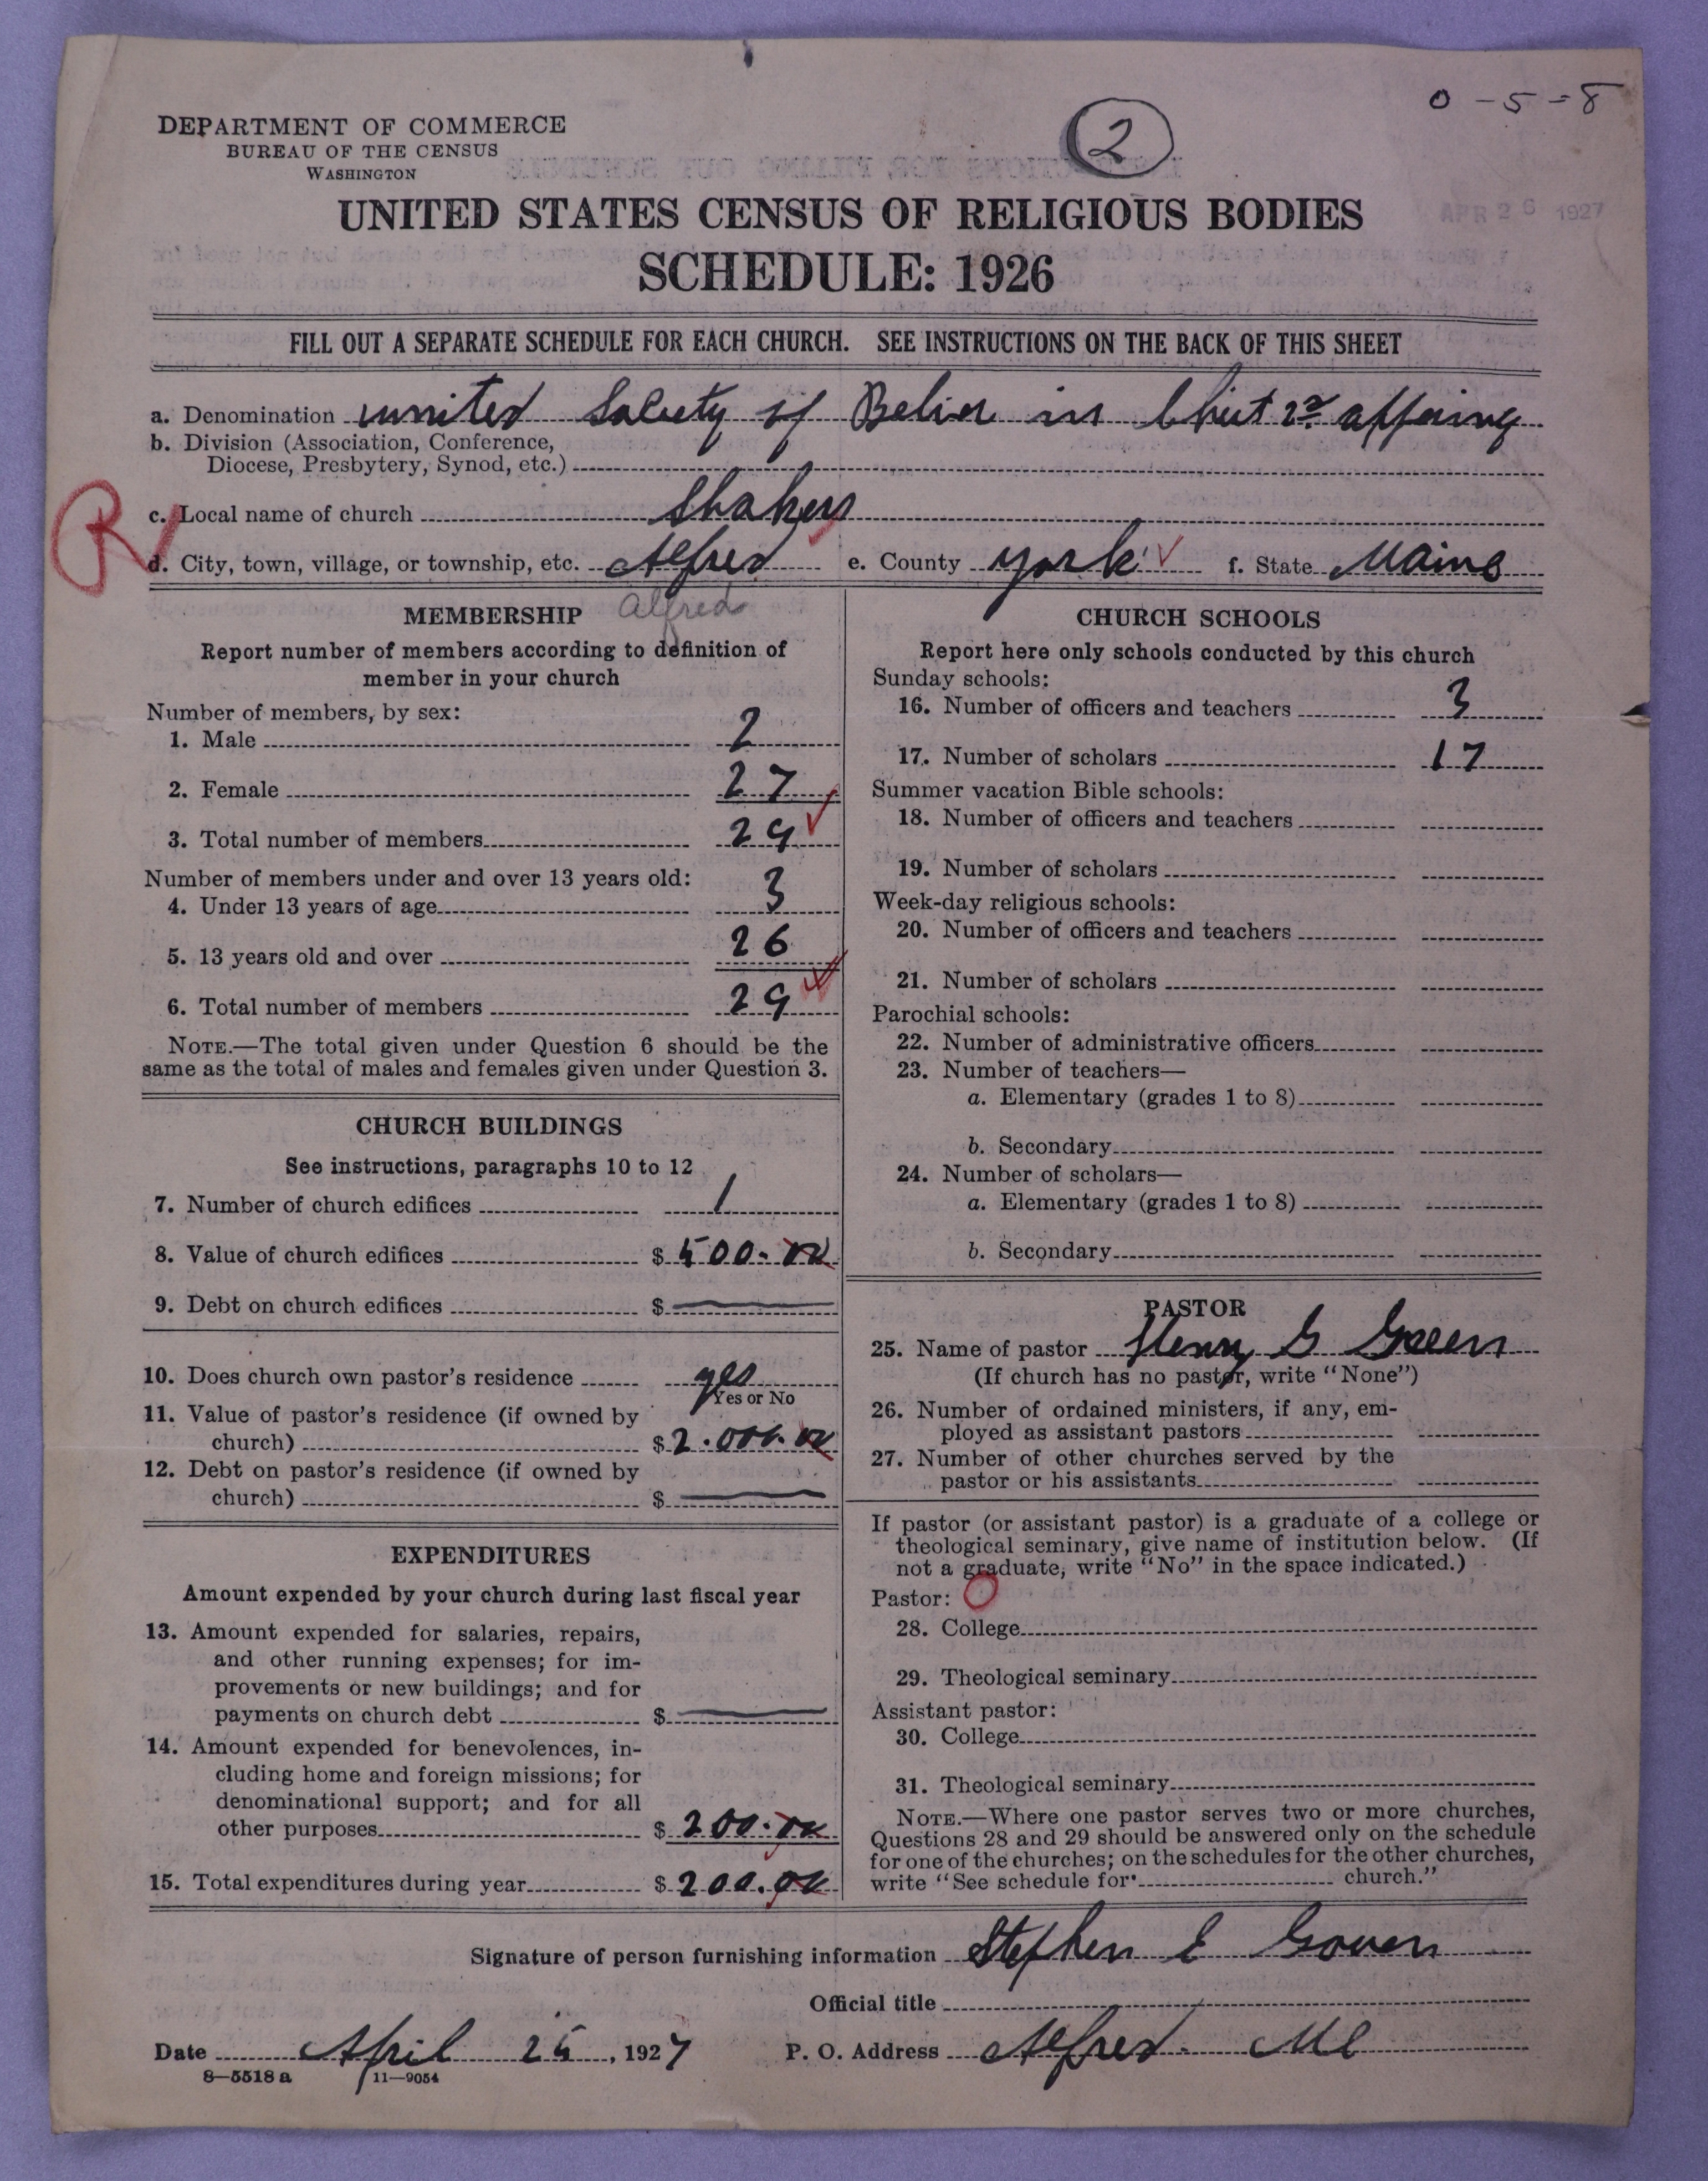 0-5-8
2
DEPARTMENT OF COMMERCE
BUREAU OF THE CENSUS
WASHINGTON
APR 26 1927
UNITED STATES CENSUS OF RELIGIOUS BODIES
SCHEDULE: 1926
FILL OUT A SEPARATE SCHEDULE FOR EACH CHURCH. SEE INSTRUCTIONS ON THE BACK OF THIS SHEET
a. Denomination united Society of in 2nd
b. Division (Association, Conference,
Diocese, Presbytery, Synod, etc.)
R
c. Local name of church Shakers
d. City, town, village, or township, etc. Alfred e. County York f. State Maine
Alfred
MEMBERSHIP
Report number of members according to definition of
member in your church
Number of members, by sex:
1. Male 2
2. Female 27
3. Total number of members 29
Number of members under and over 13 years old:
4. Under 13 years of age 3
5. 13 years old and over 26
6. Total number of members 29
NOTE.—The total given under Question 6 should be the
same as the total of males and females given under Question 3.
CHURCH BUILDINGS
See instructions, paragraphs 10 to 12
7. Number of church edifices 1
8. Value of church edifices $ 500.00
9. Debt on church edifices $
10. Does church own pastor's residence yes
Yes or No
11. Value of pastor's residence (if owned by
church) $ 2.000.00
12. Debt on pastor's residence (if owned by
church) $
EXPENDITURES
Amount expended by your church during last fiscal year
13. Amount expended for salaries, repairs,
and other running expenses; for im-
provements or new buildings; and for
payments on church debt $
14. Amount expended for benevolences, in-
cluding home and foreign missions; for
denominational support; and for all
other purposes $ 200.00
15. Total expenditures during year $ 200.00
CHURCH SCHOOLS
Report here only schools conducted by this church
Sunday schools:
16. Number of officers and teachers 3
17. Number of scholars 17
Summer vacation Bible schools:
18. Number of officers and teachers
19. Number of scholars
Week-day religious schools:
20. Number of officers and teachers
21. Number of scholars
Parochial schools:
22. Number of administrative officers
23. Number of teachers—
a. Elementary (grades 1 to 8)
b. Secondary
24. Number of scholars—
a. Elementary (grades 1 to 8)
b. Secondary
PASTOR
25. Name of pastor Henry G Green
(If church has no pastor, write "None")
26. Number of ordained ministers, if any, em-
ployed as assistant pastors
27. Number of other churches served by the
pastor or his assistants
If pastor (or assistant pastor) is a graduate of a college or
theological seminary, give name of institution below. (If
not a graduate, write "No" in the space indicated.)
Pastor: O
28. College
29. Theological seminary
Assistant pastor:
30. College
31. Theological seminary
NOTE.—Where one pastor serves two or more churches,
Questions 28 and 29 should be answered only on the schedule
for one of the churches; on the schedules for the other churches,
write "See schedule for church."
Signature of person furnishing information Stephen E Gowen
Official title
Date April 25, 1927 P. O. Address Alfred. Me
8—5518 a 11—9054